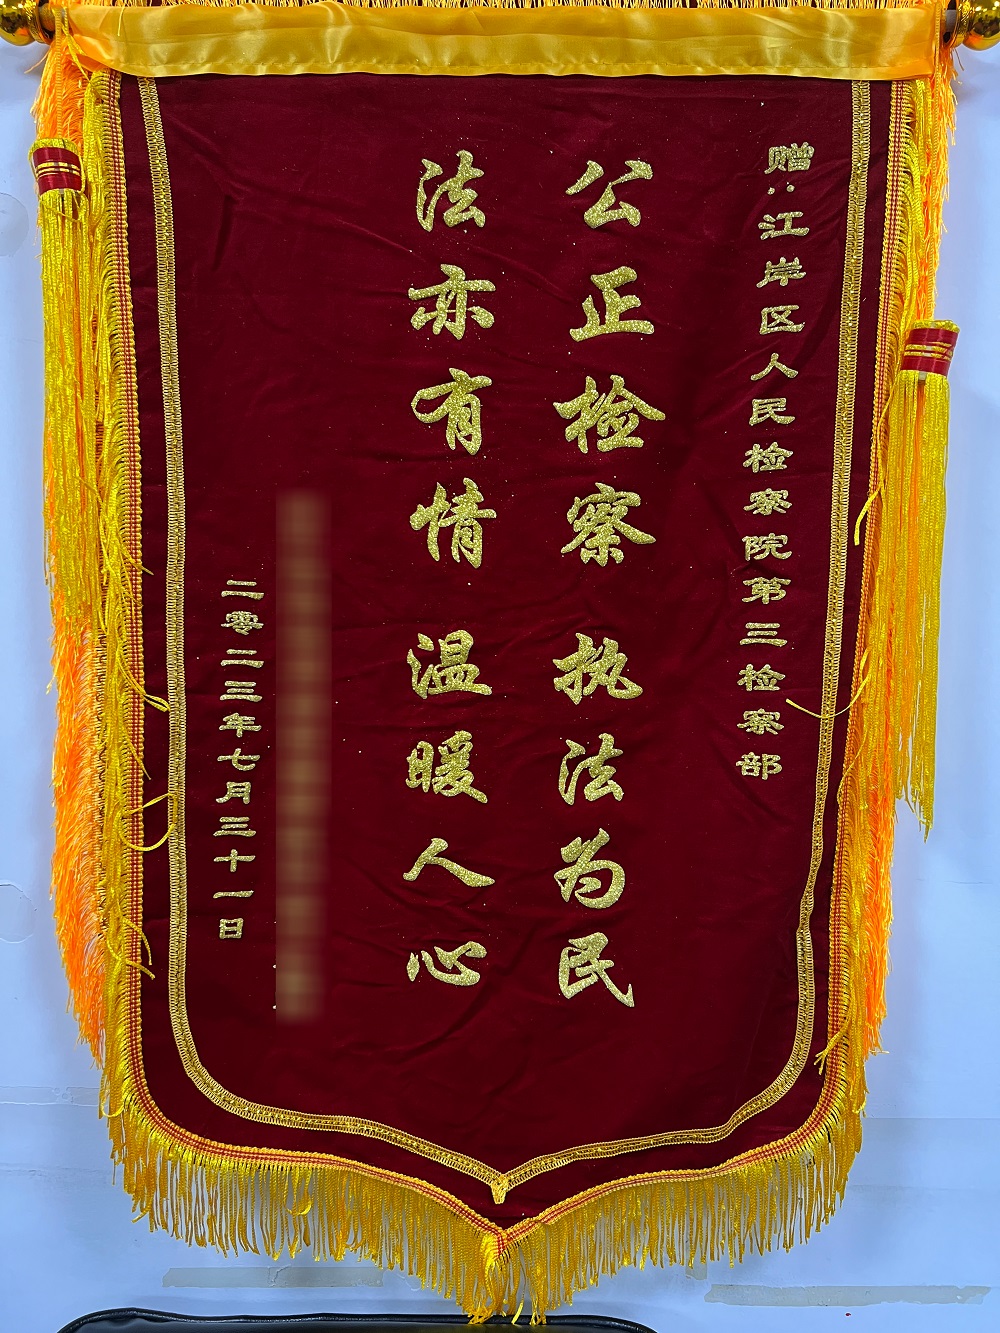 赠：江岸区人民检察院第三检察部
公正检察 执法为民
法亦有情 温暖人心
二零二三年七月三十一日